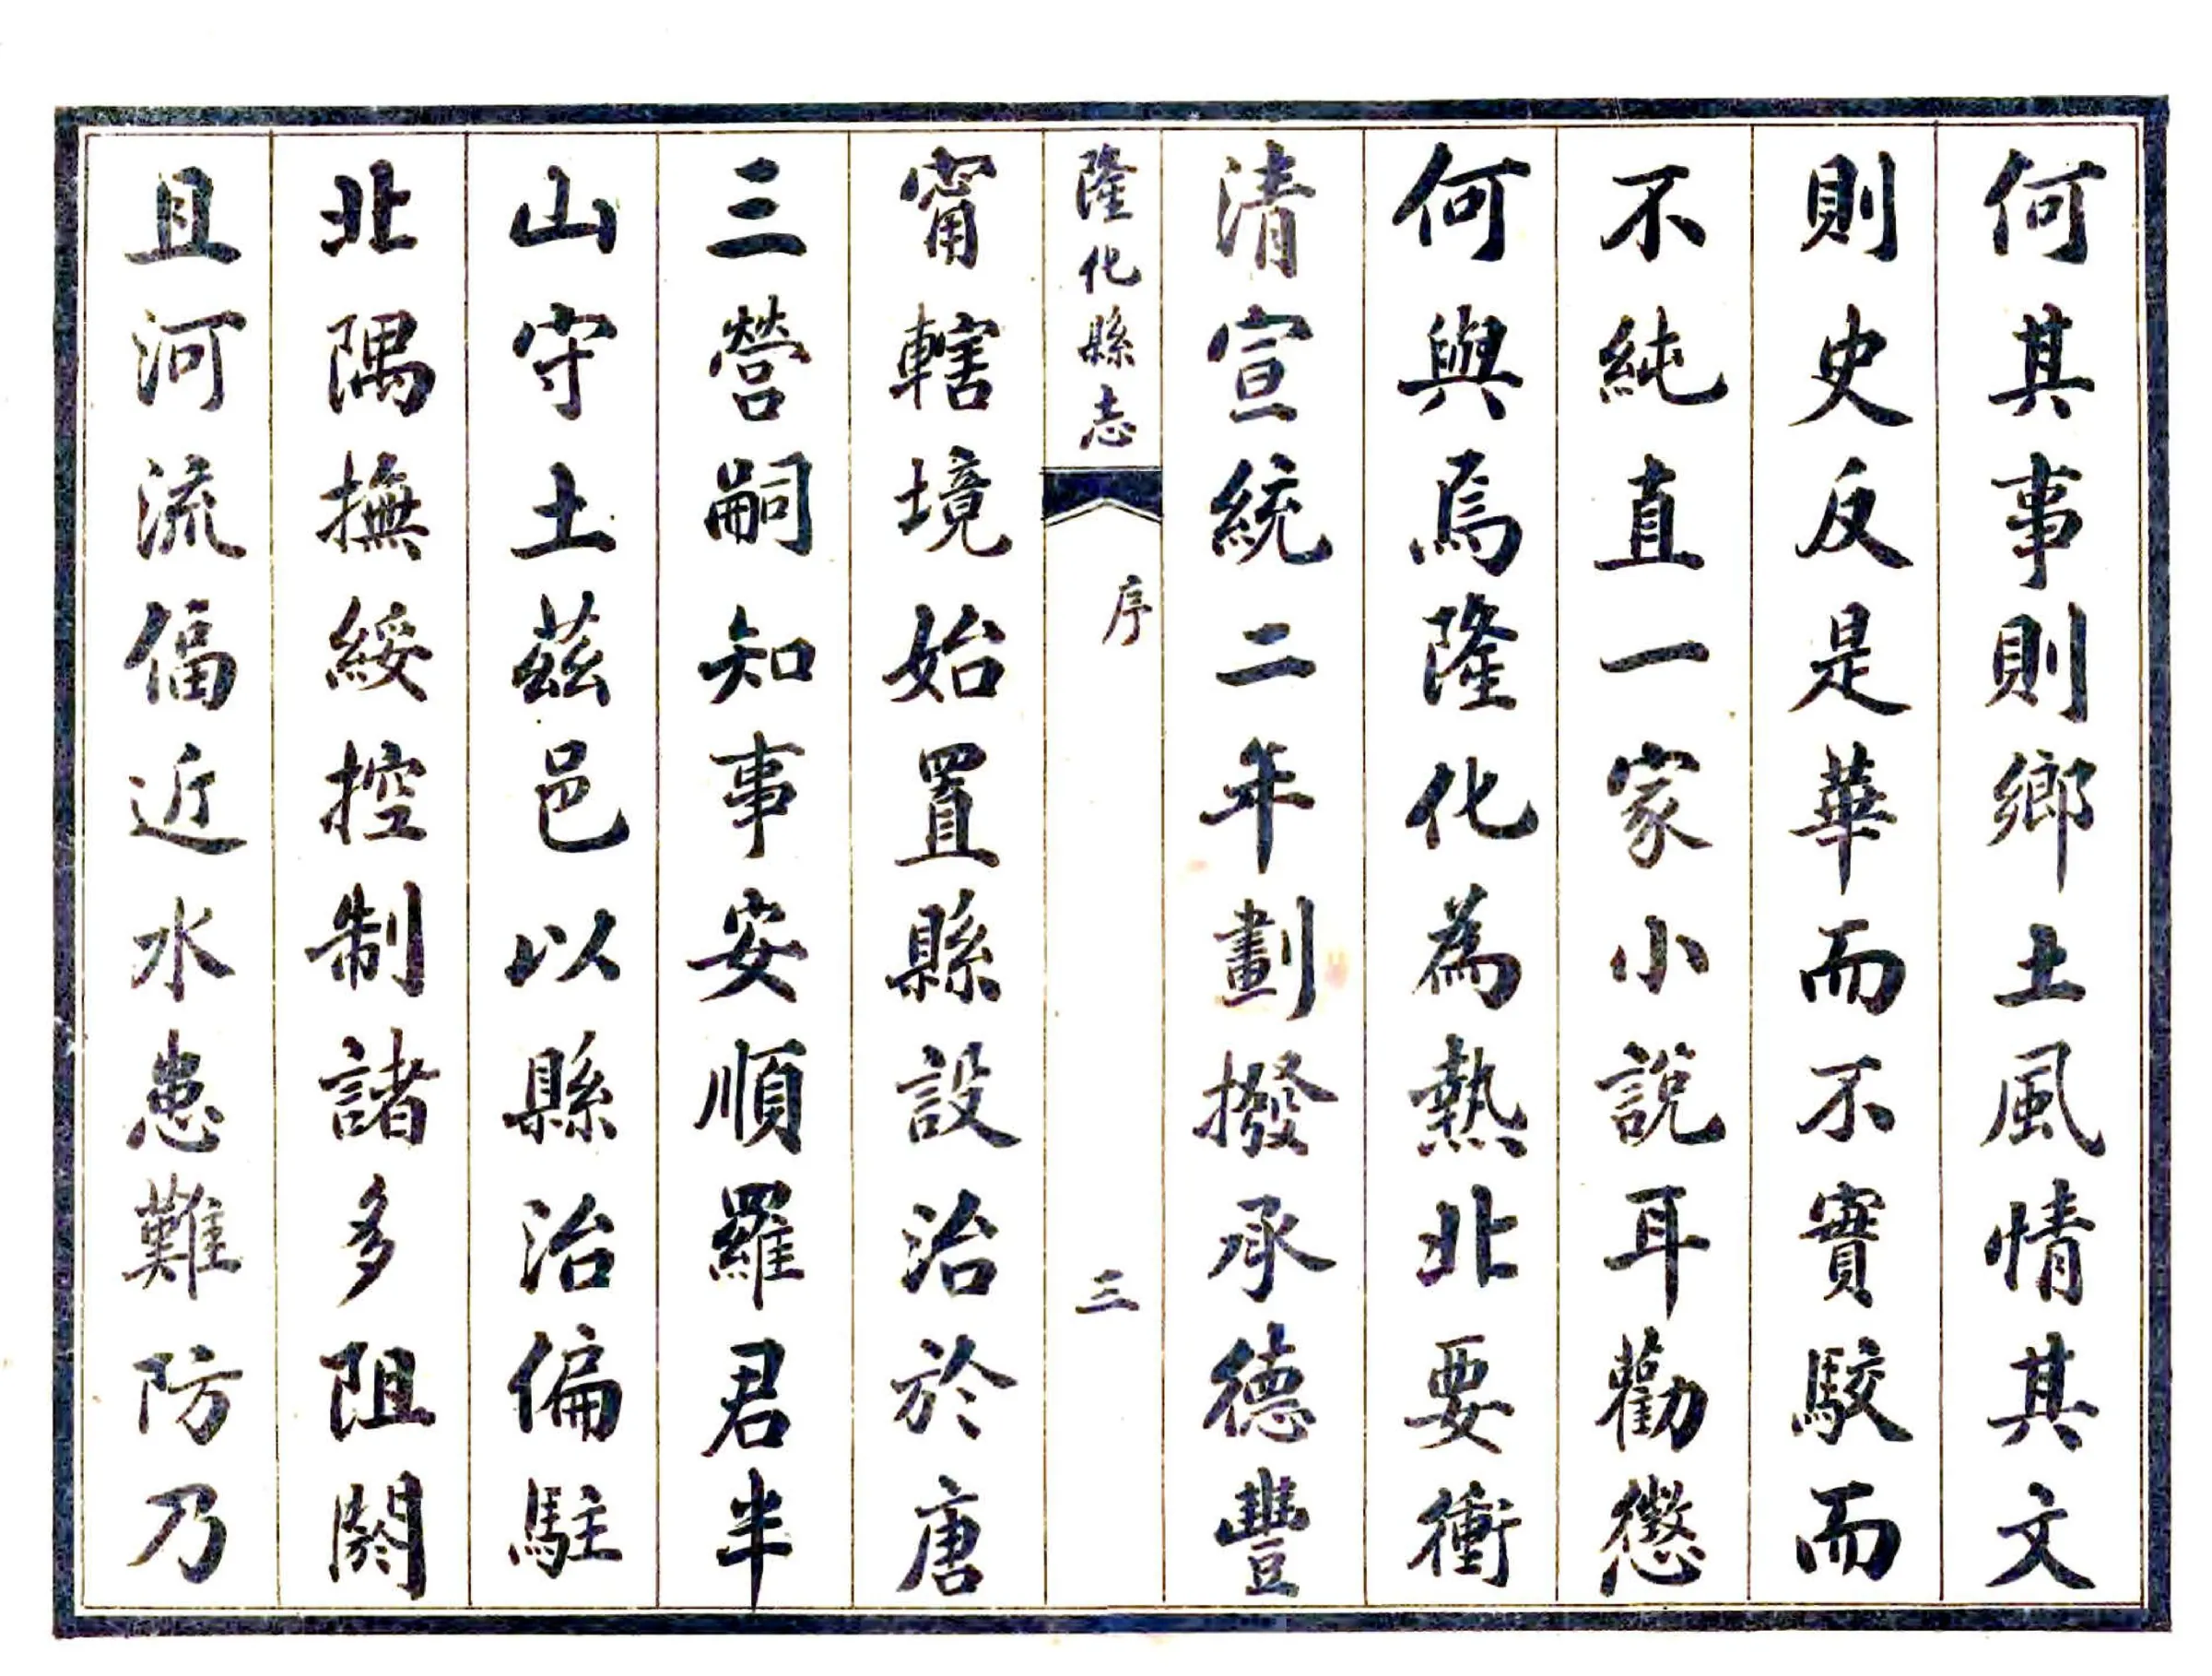 何其事則鄉土風情其文
則史反是華而不實駁而
不純直一家小說耳勸懲
何與焉隆化為熱北要衝
清宣統二年劃撥承德豐
隆化縣志
序
三
甯轄境始置縣設治於唐
三營嗣知事安順羅君半
山守土茲邑以縣治偏駐
北隅撫綏控制諸多阻閡
且河流偪近水患難防乃